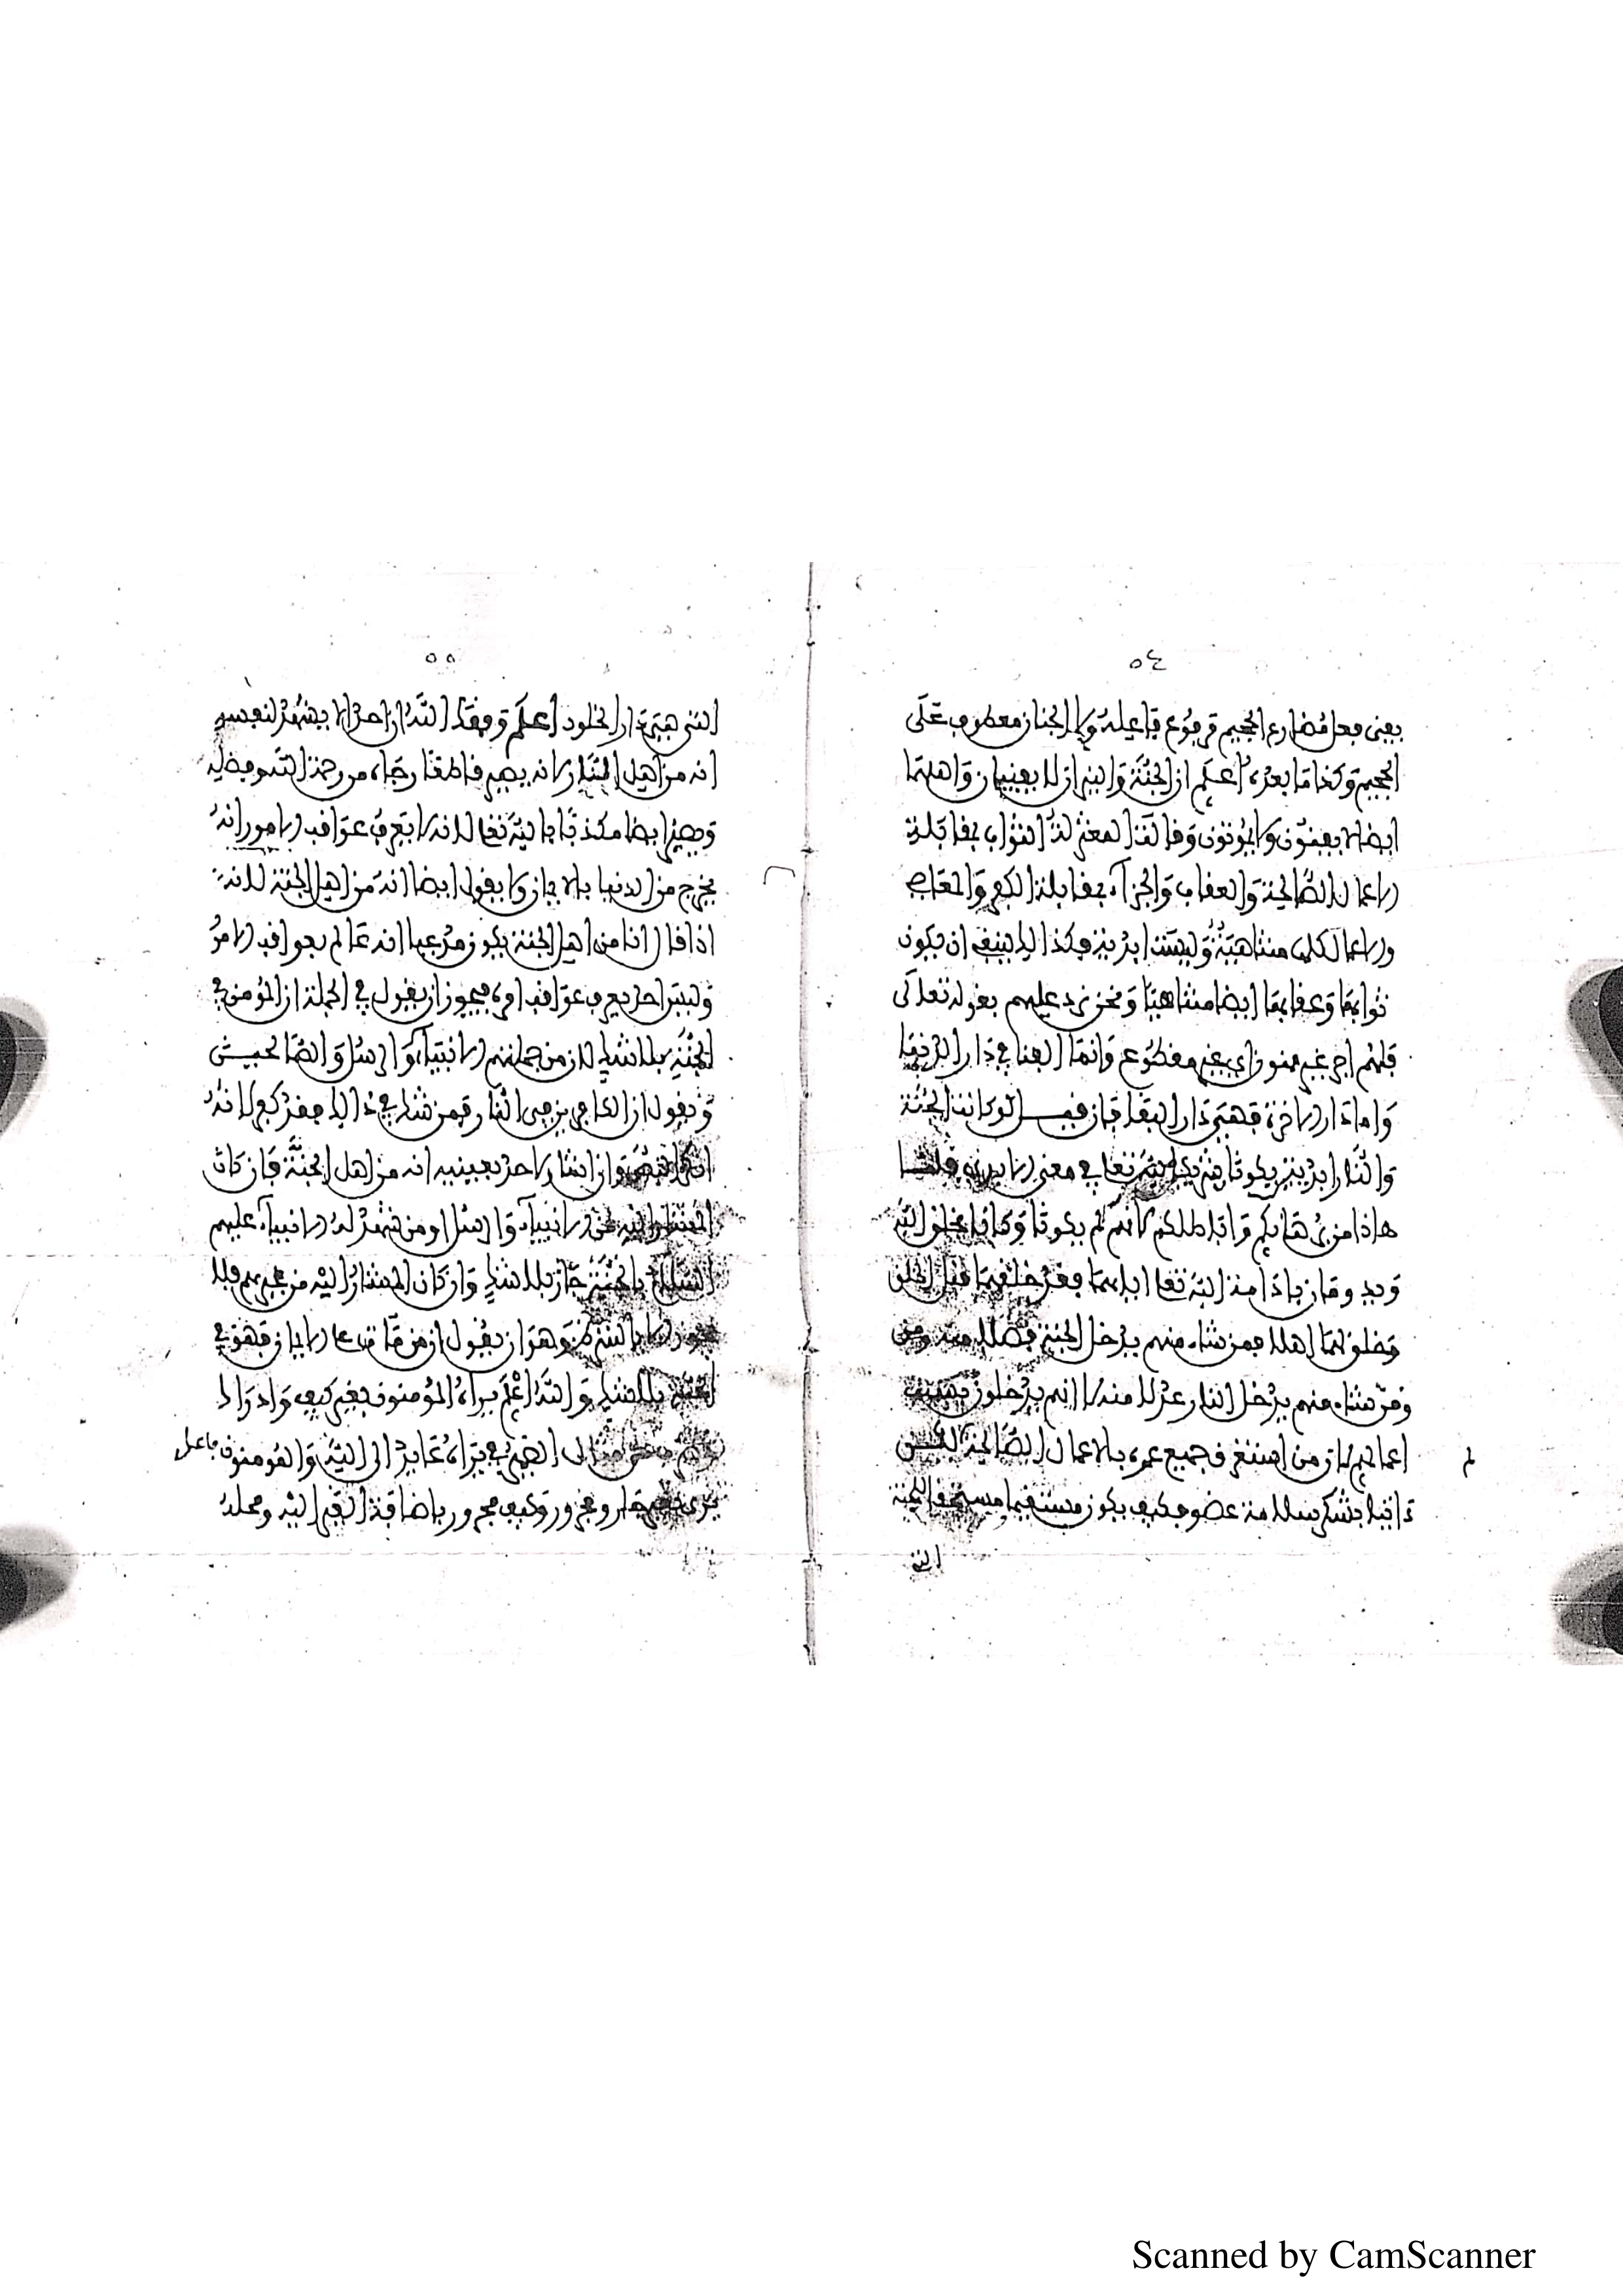 ٥٤
يفنى فعل مضارع الجحيم مرفوع فاعله ولا الجنان معطوف على
الجحيم وكذا ما بعده اعلم ان الجنة والنيران لا يفنيان واهلهما
ايضا لا يفنون ولا يموتون وقالت المعتزلة الثواب بمقابلة
الاعمال الصالحة والعقاب والجزاء بمقابلة الكفر والمعاصي
والاعمال كلها متناهية وليست ابدية فكذالك ينبغي ان يكون
ثوابها وعقابها ايضا متناهيا ونحن نرد عليهم بقوله تعالى
فلهم اجر غير ممنون اي غير مقطوع وانما الفنا في دار الدنيا
واما دار الاخرة فهي دار البقا فان قيل لو كانت الجنة
والنار ابديين يكونا شريكا لله تعالى في معنى الابدية قلنا
هاذا من
وخلق لهما اهلا فمن شاء منهم يدخل الجنة فضلا منه ومن
ومن شاء منهم يدخل النار عدلا منه لا انهم يدخلون بسبب
اعمالهم لان من استغرق جميع عمره بالاعمال الصالحة
لم
ذاتيا بشكر سلامة عضو فكيف يكون مستغنيا مستحقا للجنة
التي
٥٥
التي هي دار الخلود اعلم وفقك الله ان احدا لا يشهد لنفسه
انه من اهل النار لانه يصير قاطعا رجاءه من رحمة الله وفضله
ويصير ايضا مكذبا بالله تعالى لانه لا يعرف عواقب الامور انه
يخرج من الدنيا بالايمان ولا يقول ايضا انه من اهل الجنة لانه
اذا قال انا من اهل الجنة يكون مدعيا انه عالم بعواقب الامور
وليس احد يعرف عواقب امره فيجوز ان يقول في الجملة ان المؤمن في
الجنة بلا شك لان من جملتهم الانبياء والرسل والصالحين
ويقول ان الكافرين في النار فمن شك في ذالك فقد كفر لانه
انكر النص وان اشار لاحد بعينه انه من اهل الجنة فان كان
المشار اليه من الانبياء والرسل او من شهد له الانبياء عليهم
السلام بالجنة جاز بلا شك وان كان المشار اليه من غيرهم فلا
يجوز الا بالشرط وهو ان يقول ان من مات على الايمان فهو في
الجنة بلا شك والله اعلم يراه المؤمنون بغير كيف وادراك
الضمير في يراه عايد الى الله والمؤمنون فاعل
يرى بغير جار ومجرور وكيف مجرور باضافة الغير اليه ومحله
Scanned by CamScanner